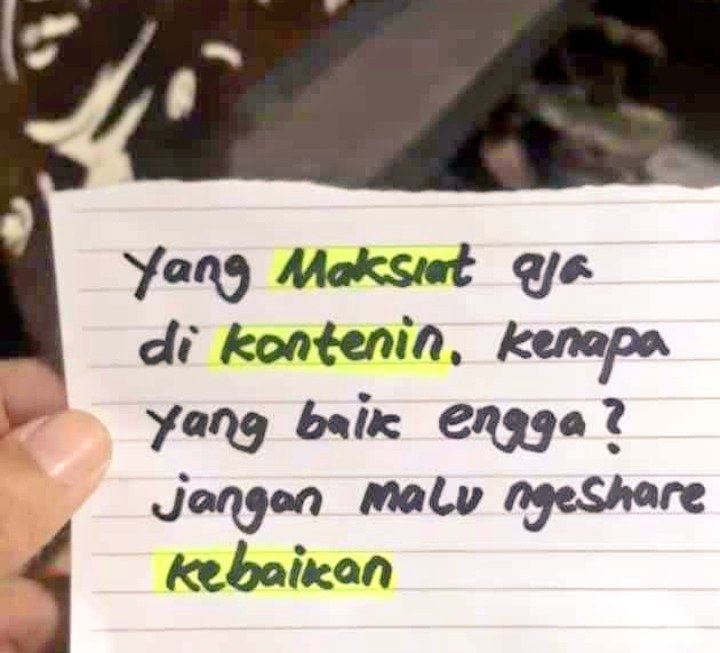 Yang Maksiat aja
di kontenin. kenapa
yang baik engga?
jangan malu ngeshare
kebaikan